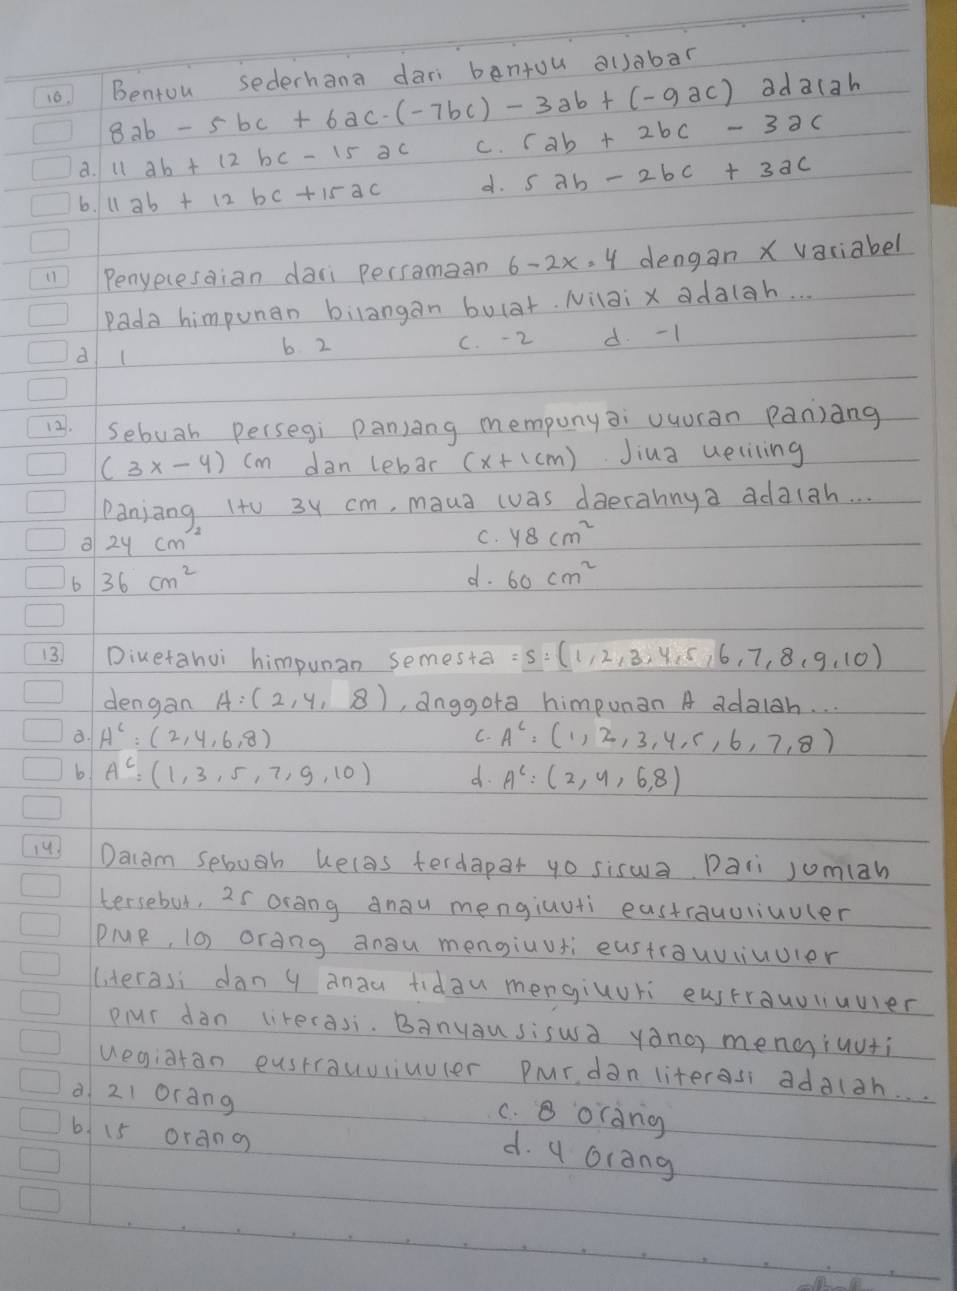 10. Bentuk sederhana dari bentuk aljabar
8ab - 5bc + 6ac - (-7bc) - 3ab + (-9ac) adalah
a. 11 ab + 12 bc - 15 ac c. 5ab + 2bc - 3ac
b. 11 ab + 12 bc + 15 ac d. 5 ab - 2bc + 3ac
11 Penyelesaian dari persamaan 6 - 2x = 4 dengan x variabel
pada himpunan bilangan bulat. Nilai x adalah...
a 1 b. 2 c. -2 d. -1
12. Sebuah persegi panjang mempunyai ukuran panjang
(3x - 4) cm dan lebar (x+1cm). Jika keliling
panjang itu 34 cm, maka luas daerahnya adalah...
a 24 cm² c. 48 cm²
b 36 cm² d. 60 cm²
13. Diketahui himpunan semesta = S = (1, 2, 3, 4, 5, 6, 7, 8, 9, 10)
dengan A = (2, 4, 8), anggota himpunan A adalah...
a. Aᶜ = (2, 4, 6, 8) c. Aᶜ = (1, 2, 3, 4, 5, 6, 7, 8)
b. Aᶜ = (1, 3, 5, 7, 9, 10) d. Aᶜ = (2, 4, 6, 8)
14. Dalam sebuah kelas terdapat 40 siswa. Dari jumlah
tersebut, 25 orang anak mengikuti ekstrakulikuler
PMR, 19 orang anak mengikuti ekstrakulikuler
literasi dan 4 anak tidak mengikuti ekstrakulikuler
PMR dan literasi. Banyak siswa yang mengikuti
kegiatan ekstrakulikuler PMR dan literasi adalah...
a. 21 orang c. 8 orang
b. 15 orang d. 4 orang